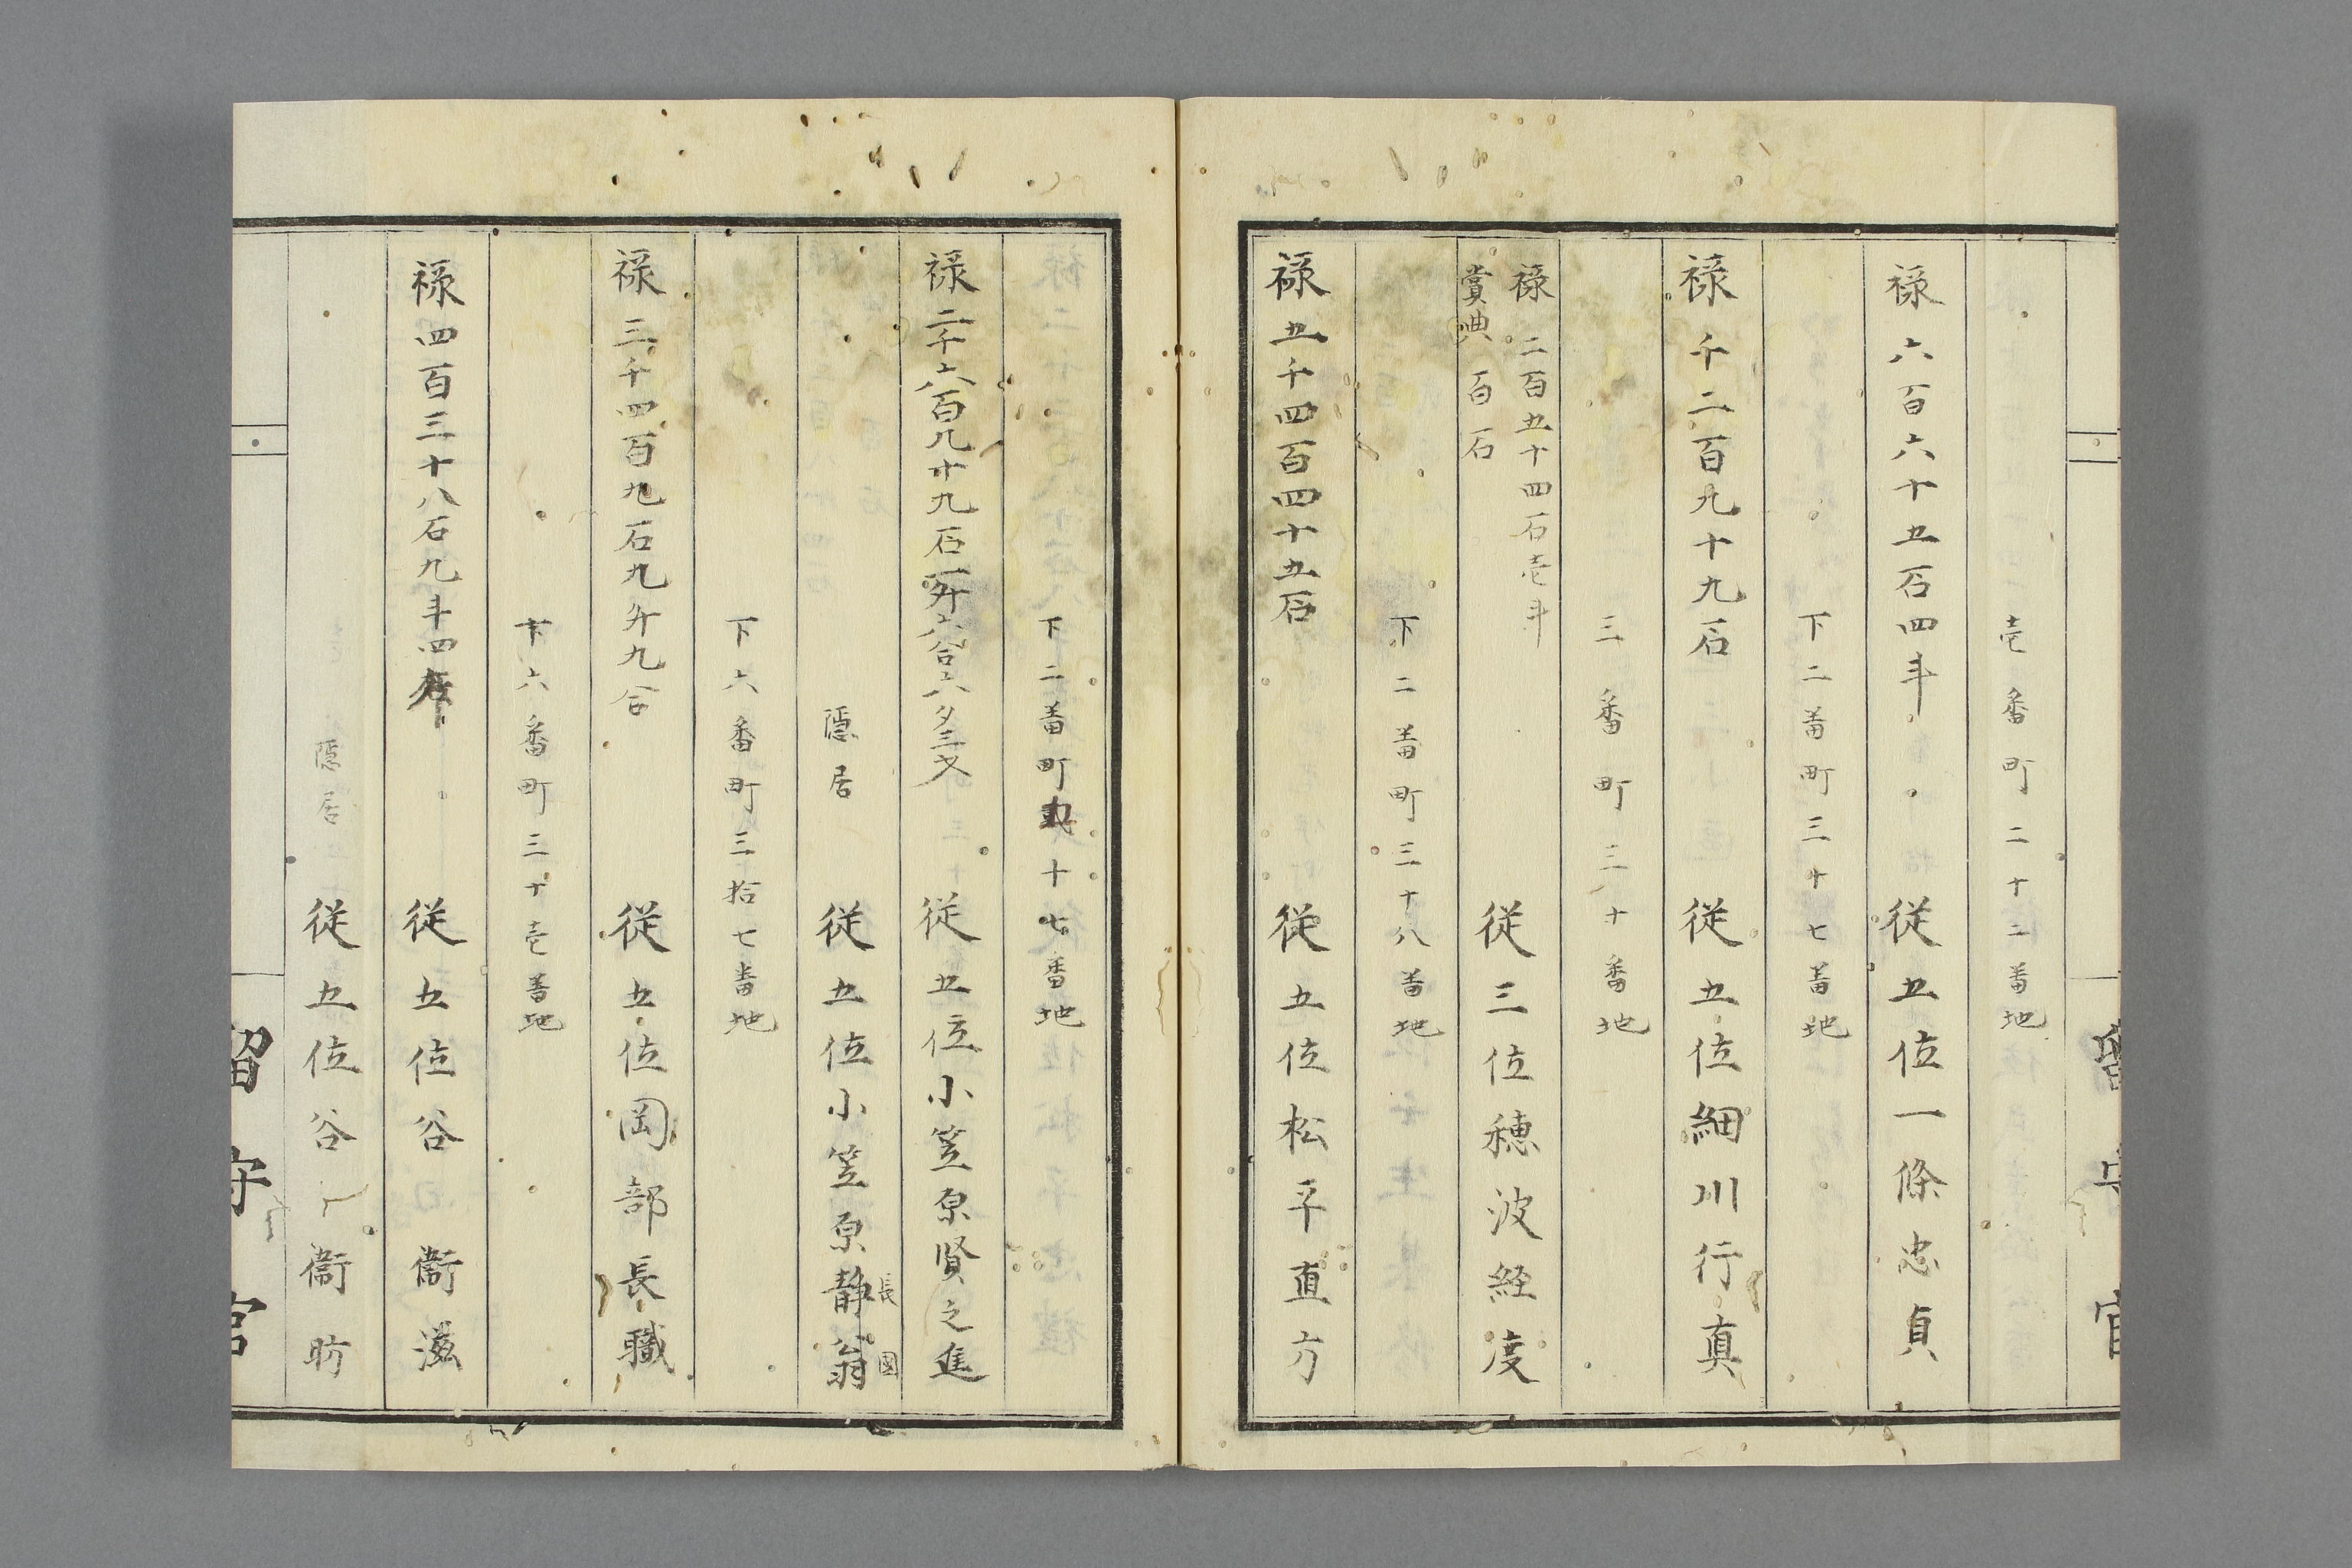 壱番町二十二番地
禄六百六十五石四斗 従五位一條忠貞
下二番町三十七番地
禄千二百九十九石 従五位細川行真
三番町三十番地
禄二百五十四石壱斗
賞典百石 従三位穂波経度
下二番町三十八番地
禄五千四百四十五石 従五位松平直方
下二番町十七番地
禄二千六百九十九石一升六合六夕三才 従五位小笠原賢之進
隠居 従五位小笠原静翁
長國
下六番町三拾七番地
禄三千四百九石九升九合 従五位岡部長職
下六番町三十壱番地
禄四百三十八石九斗四升 従五位谷衞滋
隠居 従五位谷衞昉
留守官